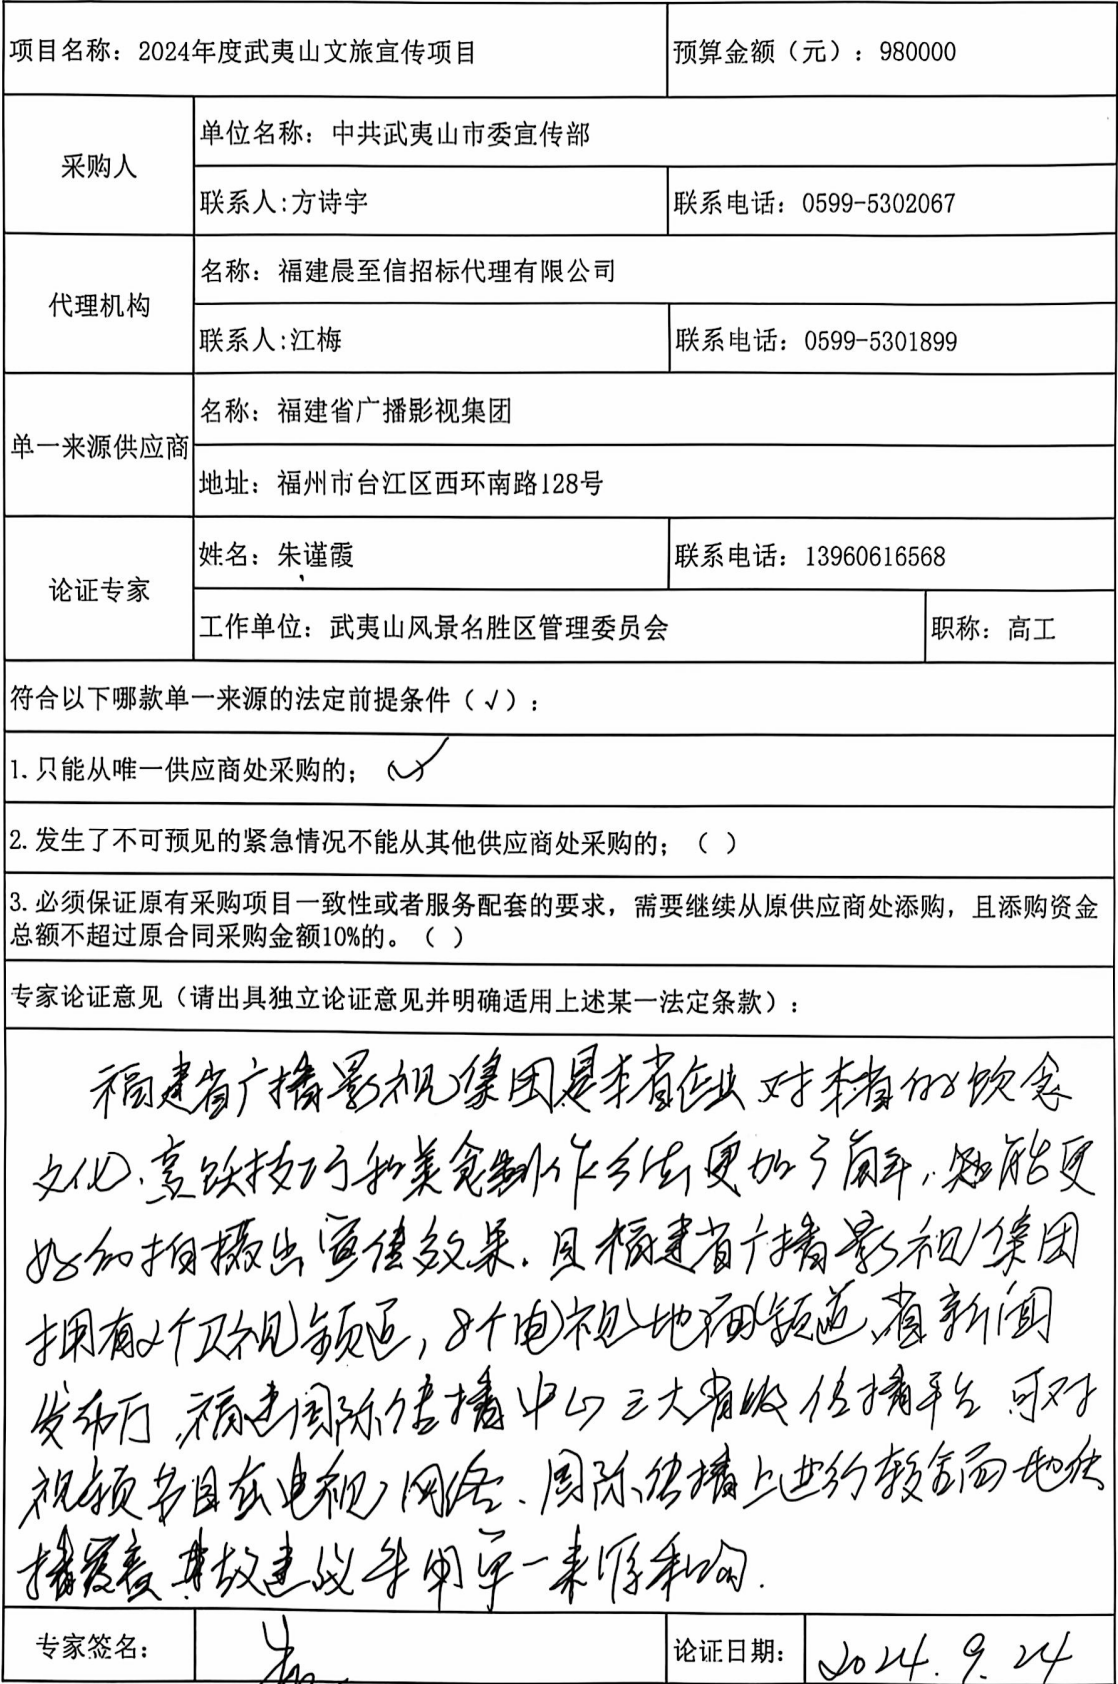 项目名称：2024年度武夷山文旅宣传项目 预算金额（元）：980000
采购人
单位名称：中共武夷山市委宣传部
联系人:方诗宇 联系电话：0599-5302067
代理机构
名称：福建晨至信招标代理有限公司
联系人:江梅 联系电话：0599-5301899
单一来源供应商
名称：福建省广播影视集团
地址：福州市台江区西环南路128号
论证专家
姓名：朱谨霞 联系电话：13960616568
工作单位：武夷山风景名胜区管理委员会 职称：高工
符合以下哪款单一来源的法定前提条件（√）：
1.只能从唯一供应商处采购的；（✓）
2.发生了不可预见的紧急情况不能从其他供应商处采购的；（ ）
3.必须保证原有采购项目一致性或者服务配套的要求，需要继续从原供应商处添购，且添购资金
总额不超过原合同采购金额10%的。（ ）
专家论证意见（请出具独立论证意见并明确适用上述某一法定条款）：
福建省广播影视集团是本省企业对本省的饮食
文化、烹饪技巧和美食制作方法更加了解，能更
好的拍摄出宣传效果。且福建省广播影视集团
拥有2个卫视频道，8个电视地面频道，省新闻
发布厅，福建国际传播中心三大省级传播平台 可对
视频节目在电视、网络、国际传播上进行较全面地传
播覆盖 故建议采用单一来源采购.
专家签名： 论证日期：2024.9.24